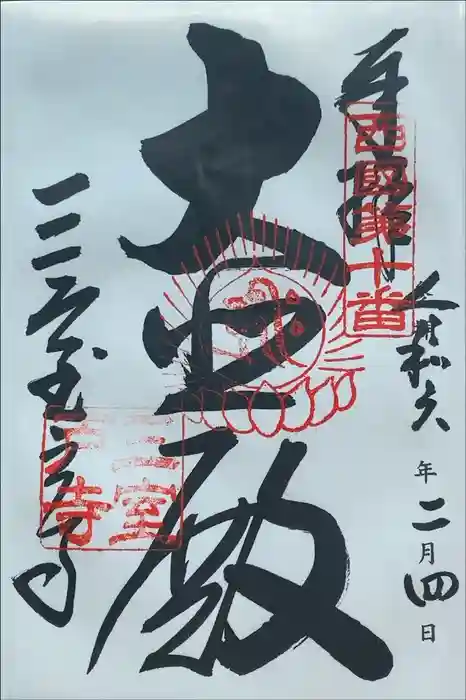 奉拝
西國第十番
令和六年二月四日
大悲殿
三室戸寺
三室
戸寺